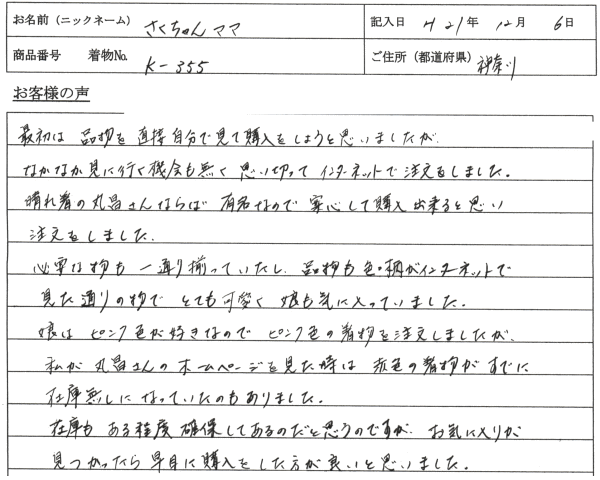 お名前（ニックネーム） さくちゃんママ 記入日 H21年 12月 6日
商品番号 着物No. K-355 ご住所（都道府県） 神奈川
お客様の声
最初は 品物を 直接自分で見て購入をしようと思いましたが、
なかなか見に行く機会も無く 思い切って インターネットで注文をしました。
晴れ着の丸昌さんならば 有名なので 安心して購入出来ると思い
注文をしました。
必要な物も 一通り揃っていたし、品物も色・柄がインターネットで
見た通りの物で とても可愛く 娘も気に入っていました。
娘は ピンク色が好きなので ピンク色の着物を注文しましたが、
私が 丸昌さんのホームページを見た時は 赤色の着物がすでに
在庫無しになっていたのもありました。
在庫も ある程度 確保してあるのだと思うのですが、お気に入りが
見つかったら 早目に購入をした方が良いと思いました。